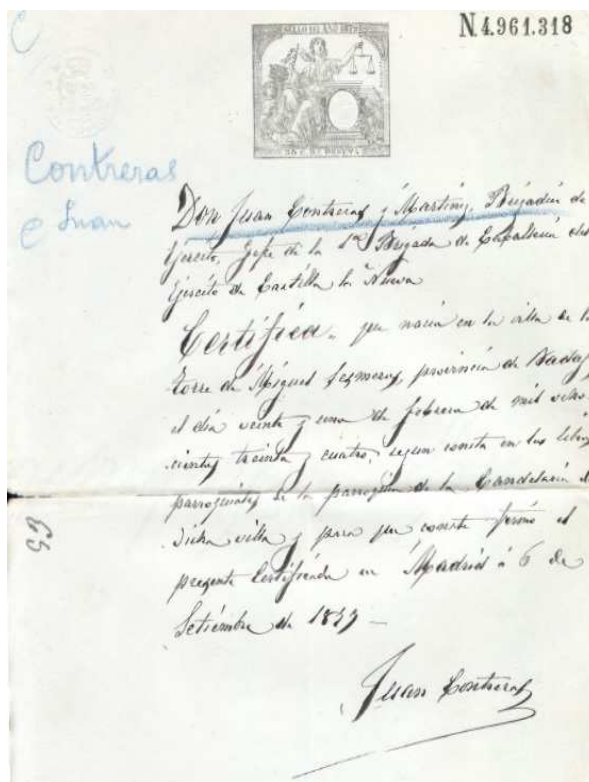 C
N.4.961.318
SELLO 11º AÑO 1877
Contreras
Juan
Don Juan Contreras y Martinez, Brigadier de
Ejercito, Gefe de la 1ª Brigada de Caballeria del
Ejercito de Castilla la Nueva
Certifica. que nació en la villa de la
torre de Miguel Sesmero, provincia de Badaj
el dia veinte y uno de febrero de mil ocho
cientos treinta y cuatro, segun consta en los libros
parroquiales de la parroquia de la Candelaria de
dicha villa y para que conste firmo el
presente Certificado en Madrid á 6 de
Setiembre de 1877 —
Juan Contreras